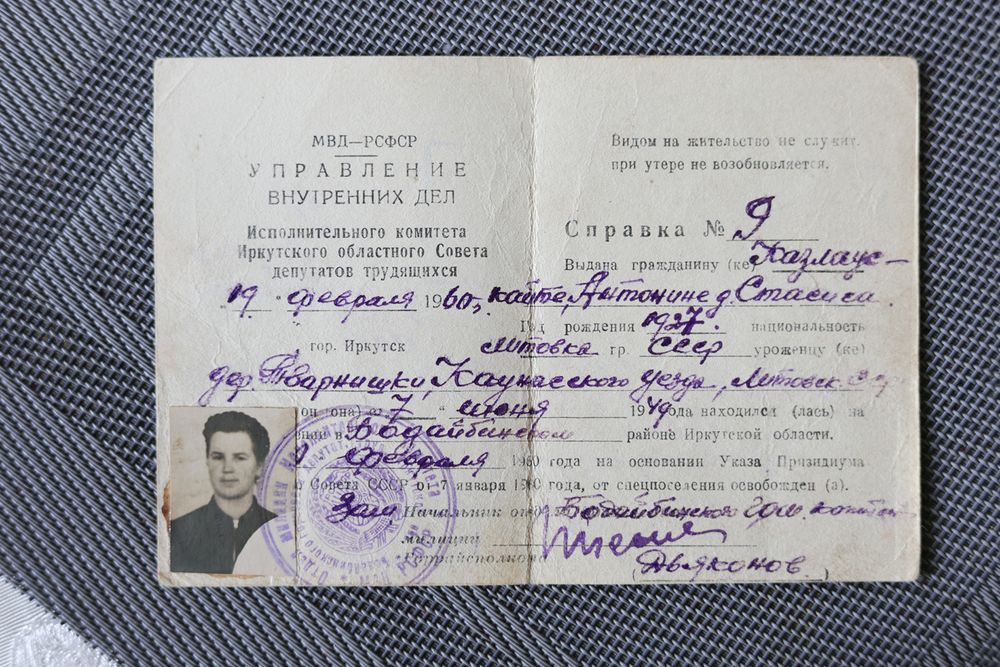 МВД—РСФСР
УПРАВЛЕНИЕ
ВНУТРЕННИХ ДЕЛ
Исполнительного комитета
Иркутского областного Совета
депутатов трудящихся
19 " февраля 1960 г,
гор. Иркутск
Видом на жительство не служит.
при утере не возобновляется.
Справка № 9
Выдана гражданину (ке) Казлаус-
кайте, Антонине д. Стасиса
Год рождения 1927. национальность
литовка гр. СССР уроженцу (ке)
дер. Тварнишки, Каунасского уезда, Литовск.
он она) с 7 " июня 1949 года находился (лась) на
в Бодайбинском районе Иркутской области.
февраля 1960 года на основании Указа Президиума
Совета СССР от 7 января 1960 года, от спецпоселения освобожден (а).
Зам Начальник Бодайбинского
милиции
Горрайисполкома (Дьяконов)